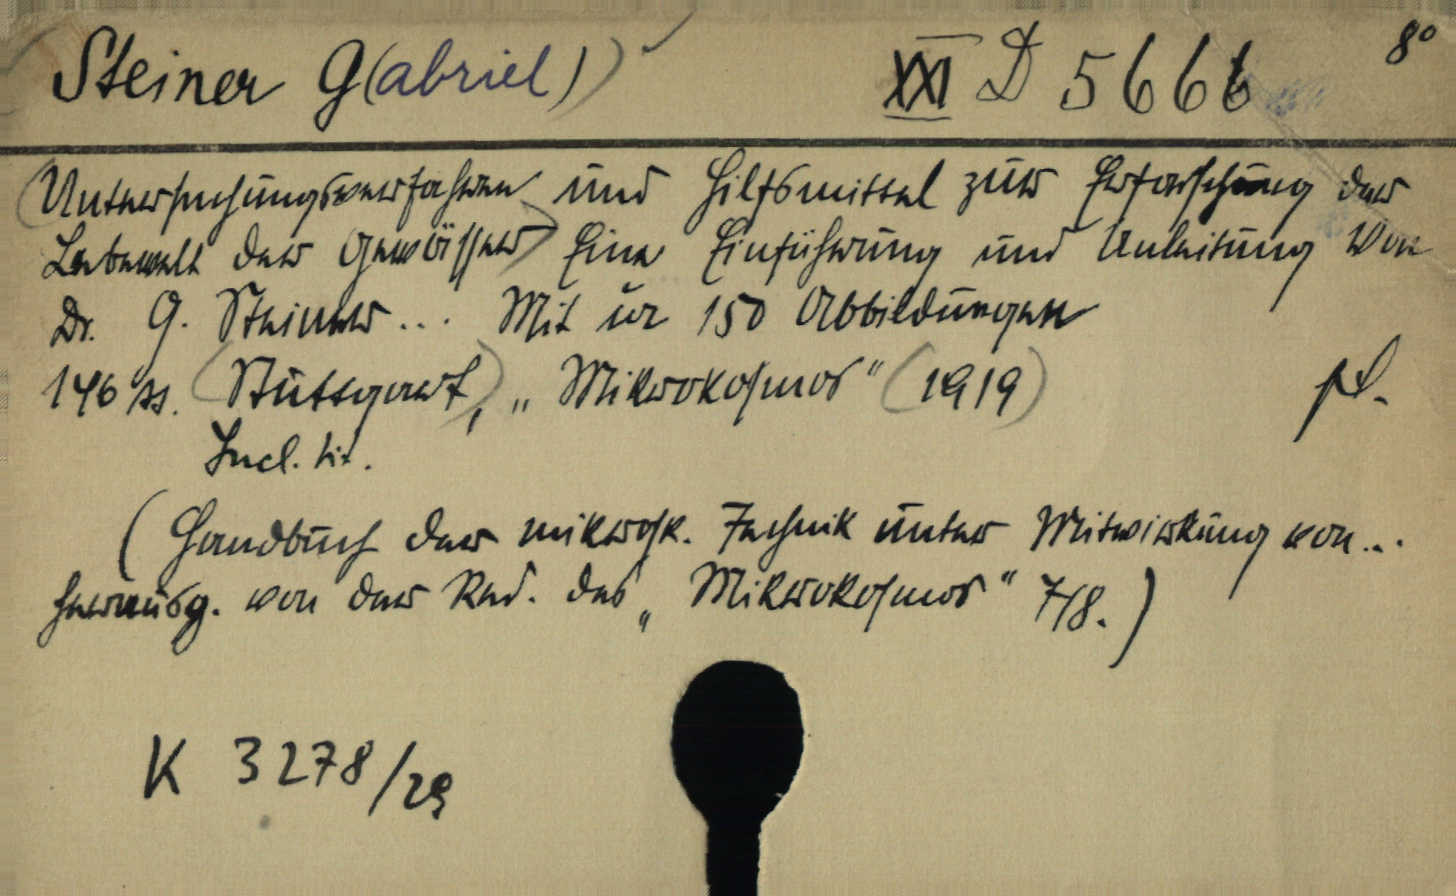 Steiner G(abriel) XXI D 5666 8°
Untersuchungsverfahren und Hilfsmittel zur Erforschung der
Lebewelt der Gewässer Eine Einführung und Anleitung Von
Dr. G. Steiner ... Mit ca 150 Abbildungen
146 ss. (Stuttgart), „Mikrokosmos" (1919)
Incl. lit.
(Handbuch der mikrosk. Technik unter Mitwirkung von...
herausg. von der Red. des „Mikrokosmos" 7/8.)
K 3278/29